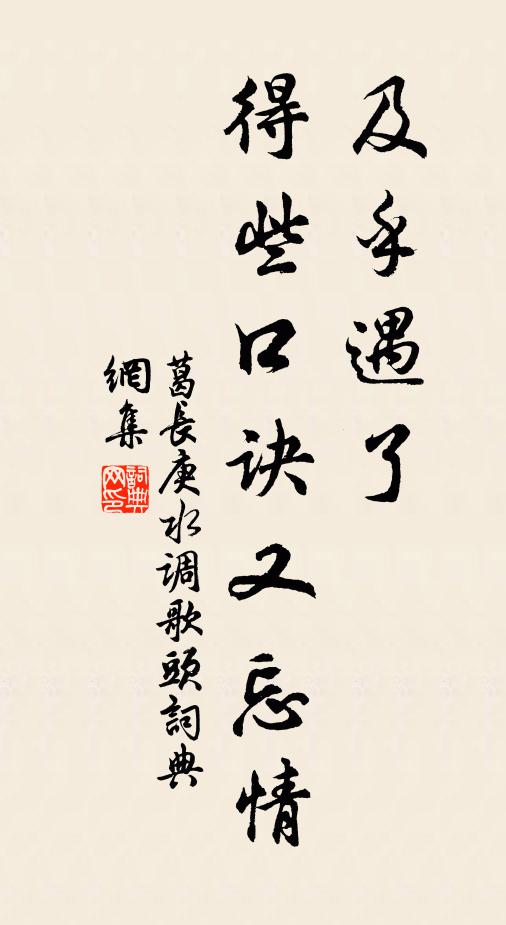 及乎遇了
得些口诀又忘情
葛長庚水调歌頭詞典
網集
詞典
网印